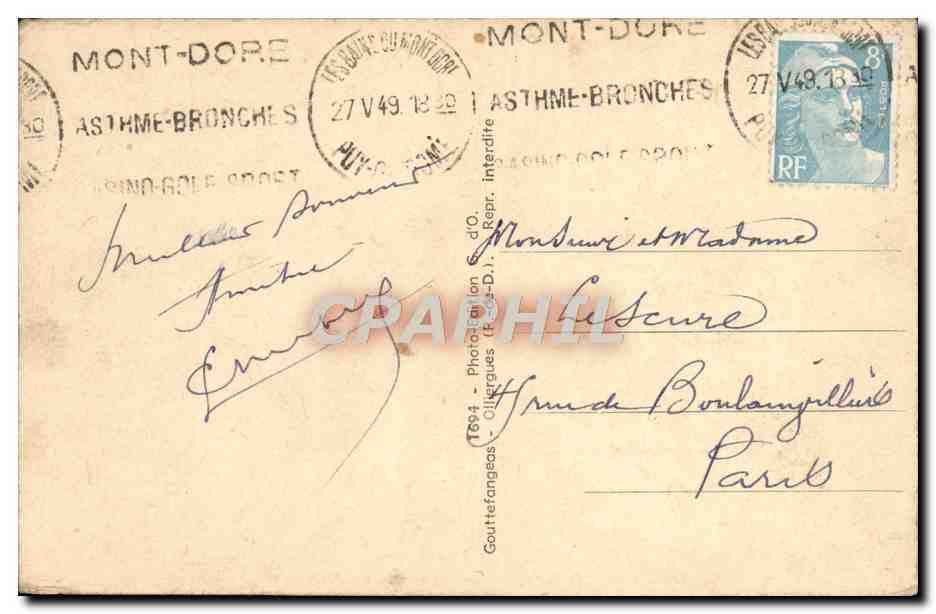 MONT-DORE
ASTHME-BRONCHES
CASINO-GOLF-SPORT
LES BAINS DU MONT DORE
27 V 49. 18 30
PUY-DE-DOME
MONT-DORE
ASTHME-BRONCHES
CASINO-GOLF-SPORT
LES BAINS DU MONT DORE
27 V 49. 18 30
PUY
8
POSTES
RF
Meilleur souvenir
Amitié
1694 - Photo-Edition G. d'O.
Gouttefangeas - Olliergues (P.-de-D.). Repr. interdite
CPAPHIL
Monsieur et Madame
Lescure
4 rue de Boulainvilliers
Paris